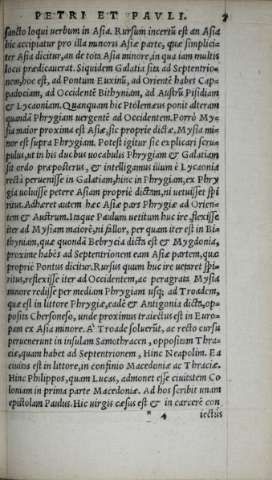 PETRI ET PAVLI. 7
sancto loqui uerbum in Asia. Rursum incertũ est an Asia
hic accipiatur pro illa minoris Asiæ parte, quæ simplici-
ter Asia dicitur, an de tota Asia minore, in qua iam multis
locis prædicauerat. Siquidem Galatia sita ad Septentrio-
nem, hoc est, ad Pontum Euxinũ, ad Orientẽ habet Cap-
padociam, ad Occidentẽ Bithyniam, ad Austrũ Pisidiam
& Lycaoniam. Quanquam hic Ptolemæus ponit alteram
quandã Phrygiam uergentẽ ad Occidentem. Porrò My-
sia maior proxima est Asiæ, sic propriè dictæ, Mysia mi-
nor est supra Phrygiam. Potest igitur sic explicari scru-
pulus, ut in his duobus uocabulis Phrygiam & Galatiam
sit ordo præposterus, & intelligamus illum è Lycaonia
rectà peruenisse in Galatiam, hinc in Phrygiam, ex Phry
gia uoluisse petere Asiam propriè dictam, ni uetuisset spi
ritus. Adhæret autem hæc Asiæ pars Phrygiæ ad Orien-
tem & Austrum. Itaque Paulum uetitum huc ire, flexisse
iter ad Mysiam maiorẽ, ni fallor, per quam iter est in Bi-
thyniam, quæ quondã Bebrycia dicta est & Mygdonia,
proximè habẽs ad Septentrionem eam Asiæ partem, quæ
propriè Pontus dicitur. Rursus quum huc ire uetaret spi-
ritus, reflexisse iter ad Occidentem, ac peragrata Mysia
minore redisse per mediam Phrygiam usq; ad Troadem,
quæ est in littore Phrygiæ, eadẽ & Antigonia dicta, op-
positæ Chersoneso, unde proximus traiectus est in Euro-
pam ex Asia minore. A` Troade soluerũt, ac recto cursu
peruenerunt in insulam Samothracen, oppositam Thra-
ciæ, quam habet ad Septentrionem, Hinc Neapolim. Ea
ciuitas est in littore, in confinio Macedoniæ ac Thraciæ.
Hinc Philippos, quam Lucas, admonet esse ciuitatem Co
loniam in prima parte Macedoniæ. Ad hos scribit unam
epistolam Paulus. Hic uirgis cæsus est & in carcerẽ con
4 iectus